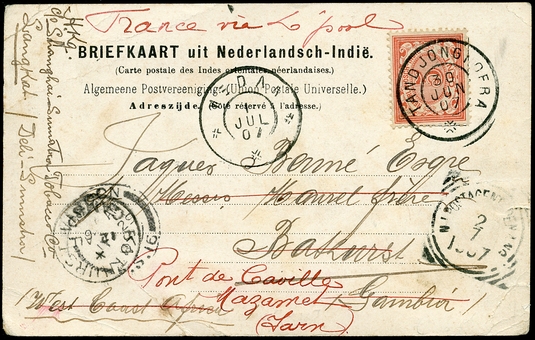 France via L'pool
BRIEFKAART uit Nederlandsch-Indië.
(Carte postale des Indes orientales néerlandaises.)
Algemeene Postvereeniging. (Union Postale Universelle.)
Adreszijde. (Côté réservé à l'adresse.)
TANDJONGPOERA
30
JUN
07
MEDAN
JUL
07
Jaques Bonné Esqre
Messrs Maurel frères
Bathurst
Pont de Caville
Mazamet
Gambia /
/ West Coast Africa
(Tarn)
N.I. POSTAGENT PENANG
2
7
1907
c/o Shanghai-Sumatra Tobacco Co
Langkat / Deli-Sumatra /